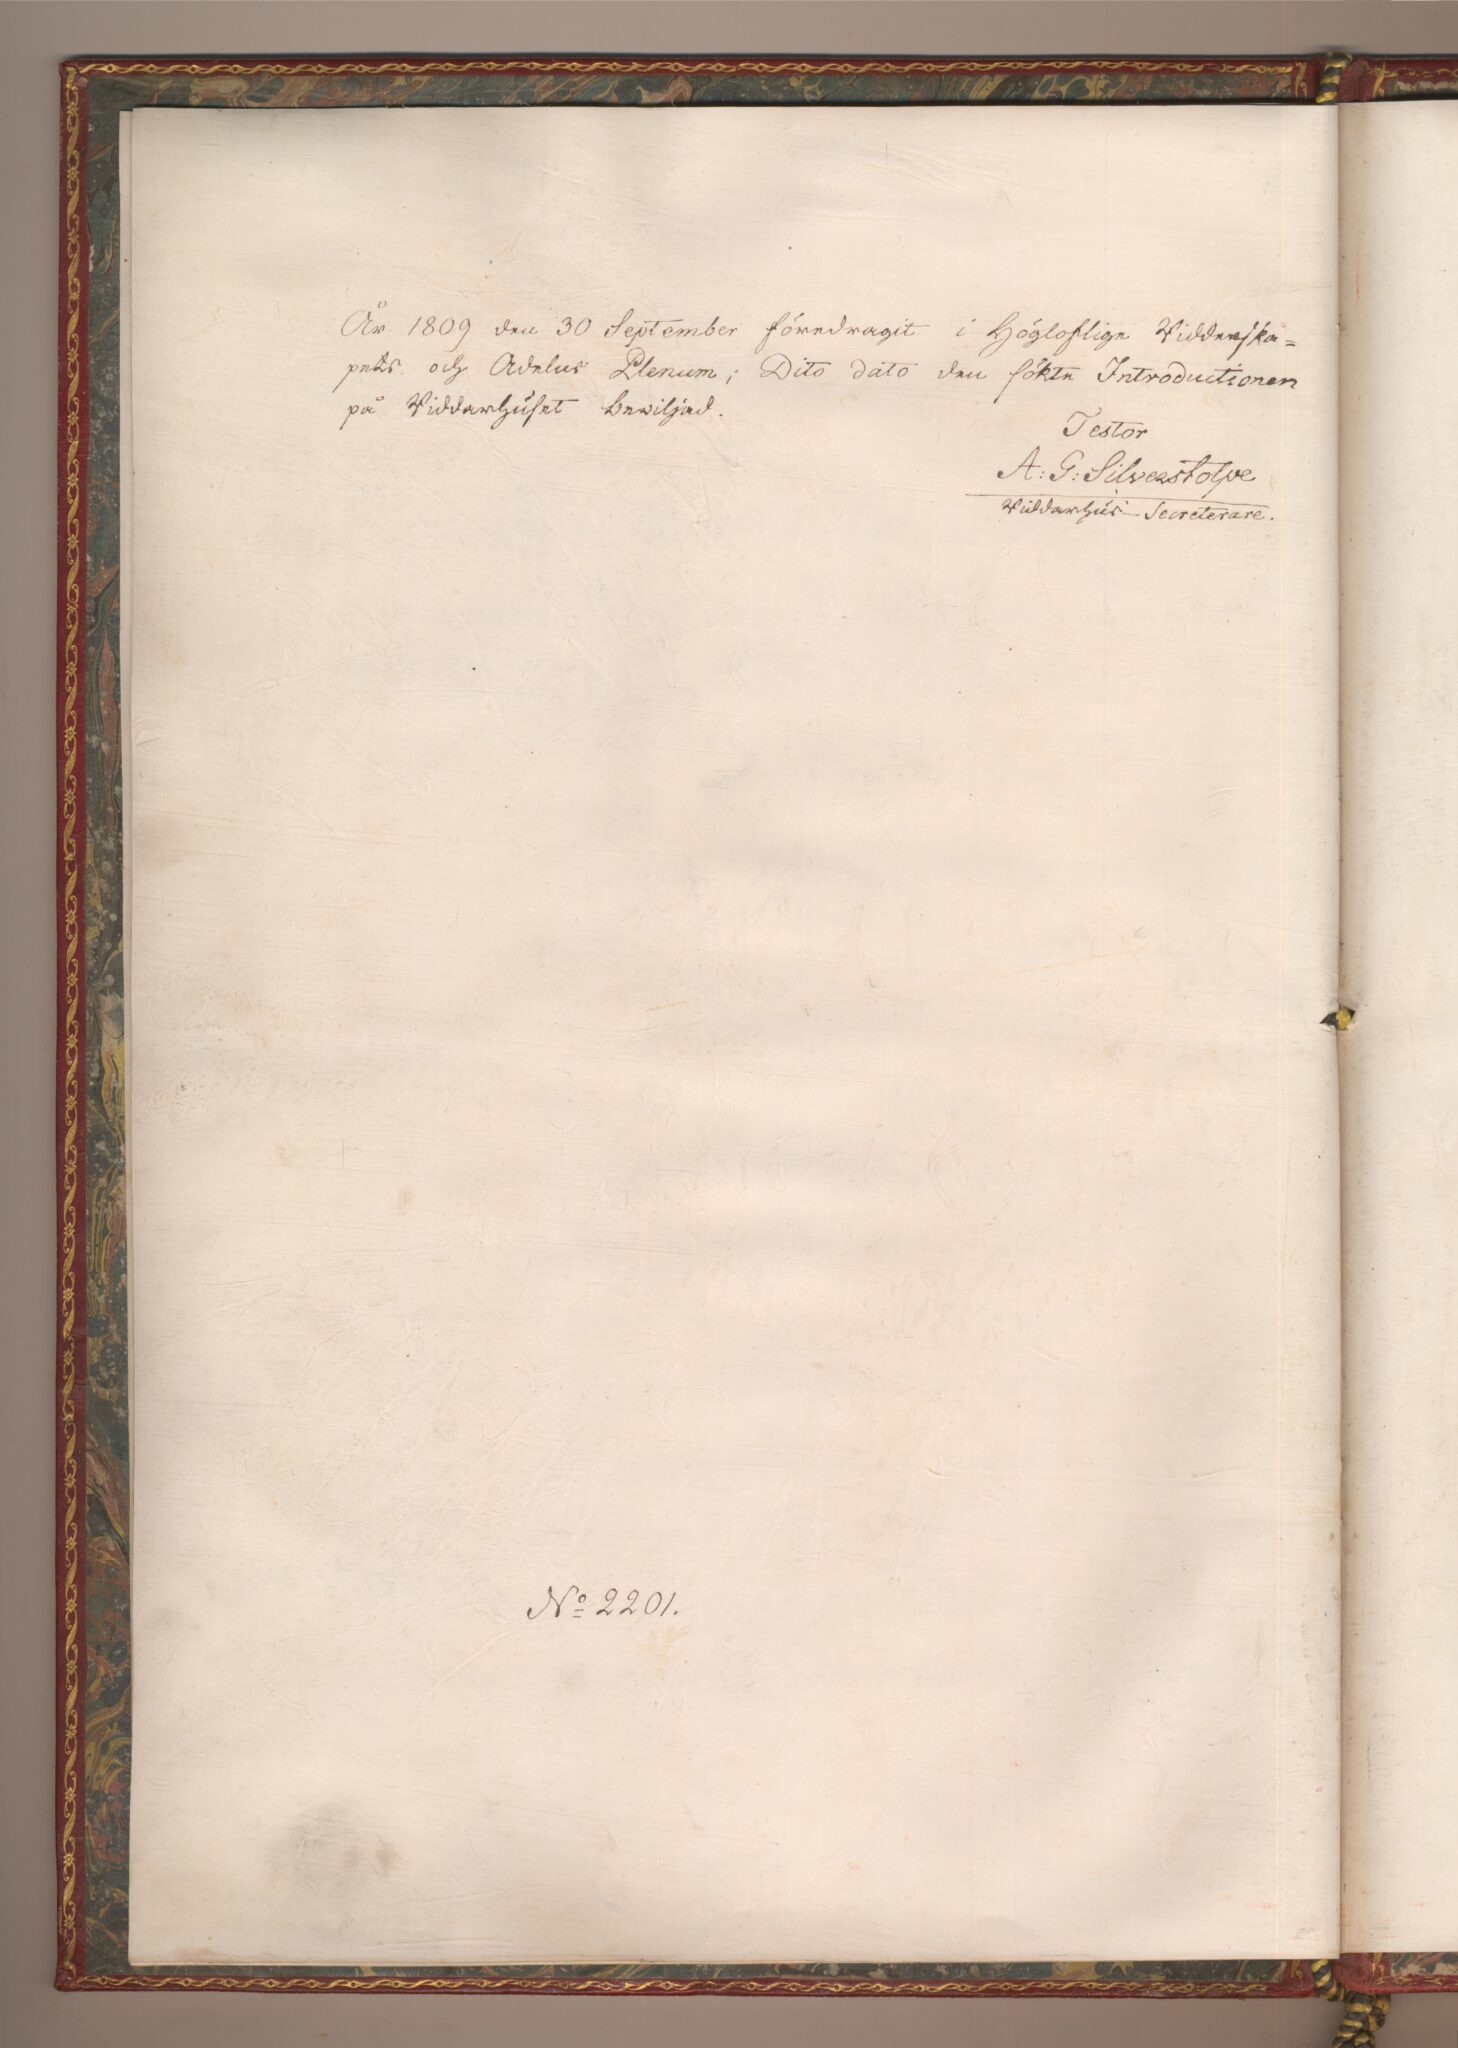 År 1809 den 30 September föredragit i Högloflige Ridderska=
pets och Adelns Plenum; Dito dato den sökte Introductionen
på Riddarhuset bewiljad.
Testor
A: G: Silverstolpe
Riddarhus-Secreterare.
No 2201.